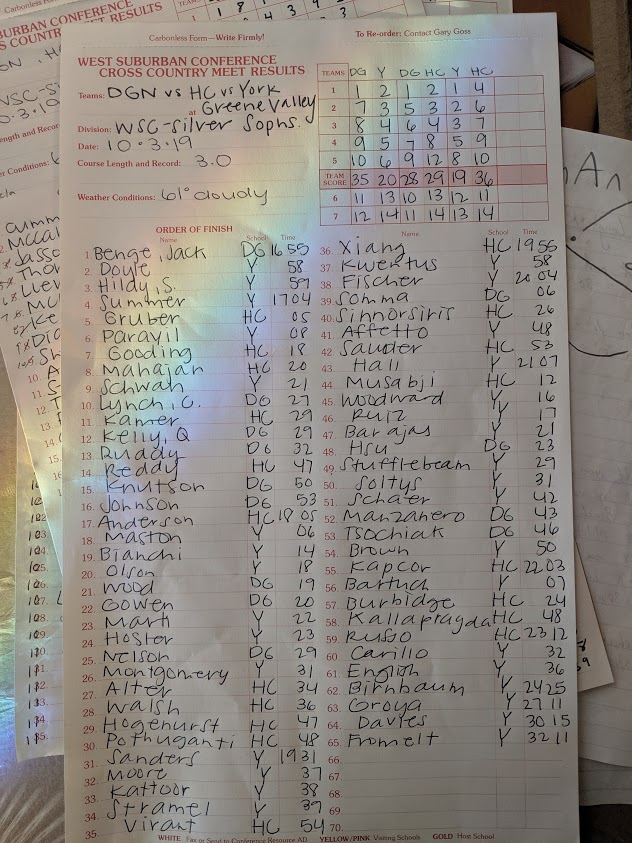 Carbonless Form—Write Firmly!
To Re-order: Contact Gary Goss
WEST SUBURBAN CONFERENCE
CROSS COUNTRY MEET RESULTS
Teams: DGN vs HC vs York
at Greene Valley
Division: WSC-Silver Sophs.
Date: 10.3.19
Course Length and Record: 3.0
Weather Conditions: 61° cloudy
TEAMS DG Y DG HC Y HC
1 1 2 1 2 1 4
2 7 3 5 3 2 6
3 8 4 6 4 3 7
4 9 5 7 8 5 9
5 10 6 9 12 8 10
TEAM SCORE 35 20 28 29 19 36
6 11 13 10 13 12 11
7 12 14 11 14 13 14
ORDER OF FINISH
Name School Time
1. Benge, Jack DG 16 55
2. Doyle Y 58
3. Hildy, S. Y 59
4. Summer Y 17 04
5. Gruber HC 05
6. Parayil Y 08
7. Gooding HC 18
8. Mahajan HC 20
9. Schwah Y 21
10. Lynch, C. DG 27
11. Kamer HC 29
12. Kelly, Q DG 29
13. Ruddy DG 32
14. Reddy HC 47
15. Knutson DG 50
16. Johnson DG 53
17. Anderson HC 18 05
18. Maston Y 06
19. Bianchi Y 14
20. Olson Y 18
21. Wood DG 19
22. Gowen DG 20
23. Marti Y 22
24. Hoster Y 23
25. Nelson DG 29
26. Montgomery Y 31
27. Alter HC 34
28. Walsh HC 36
29. Hogenurst HC 47
30. Pothuganti HC 48
31. Sanders Y 19 31
32. Moore Y 37
33. Kattoor Y 38
34. Stramel Y 39
35. Virant HC 54
Name School Time
36. Xiang HC 19 55
37. Kwentus Y 58
38. Fischer Y 20 04
39. Somma DG 06
40. Sinnorsiris HC 26
41. Affetto Y 48
42. Sauder HC 53
43. Hall Y 21 07
44. Musabji HC 12
45. Woodward Y 16
46. Ruiz Y 17
47. Barajas Y 21
48. Hsu DG 23
49. Stufflebeam Y 29
50. Soltys Y 31
51. Schafer Y 42
52. Manzanero DG 43
53. Tsochiak DG 46
54. Brown Y 50
55. Kapcor HC 22 03
56. Bartuch Y 07
57. Burbidge HC 24
58. Kallapragda HC 48
59. Russo HC 23 12
60. Carillo Y 32
61. English Y 36
62. Birnbaum Y 24 25
63. Goroya Y 27 11
64. Davies Y 30 15
65. Fromelt Y 32 11
66.
67.
68.
69.
70.
WHITE Fax or Send to Conference Resource AD YELLOW/PINK Visiting Schools GOLD Host School